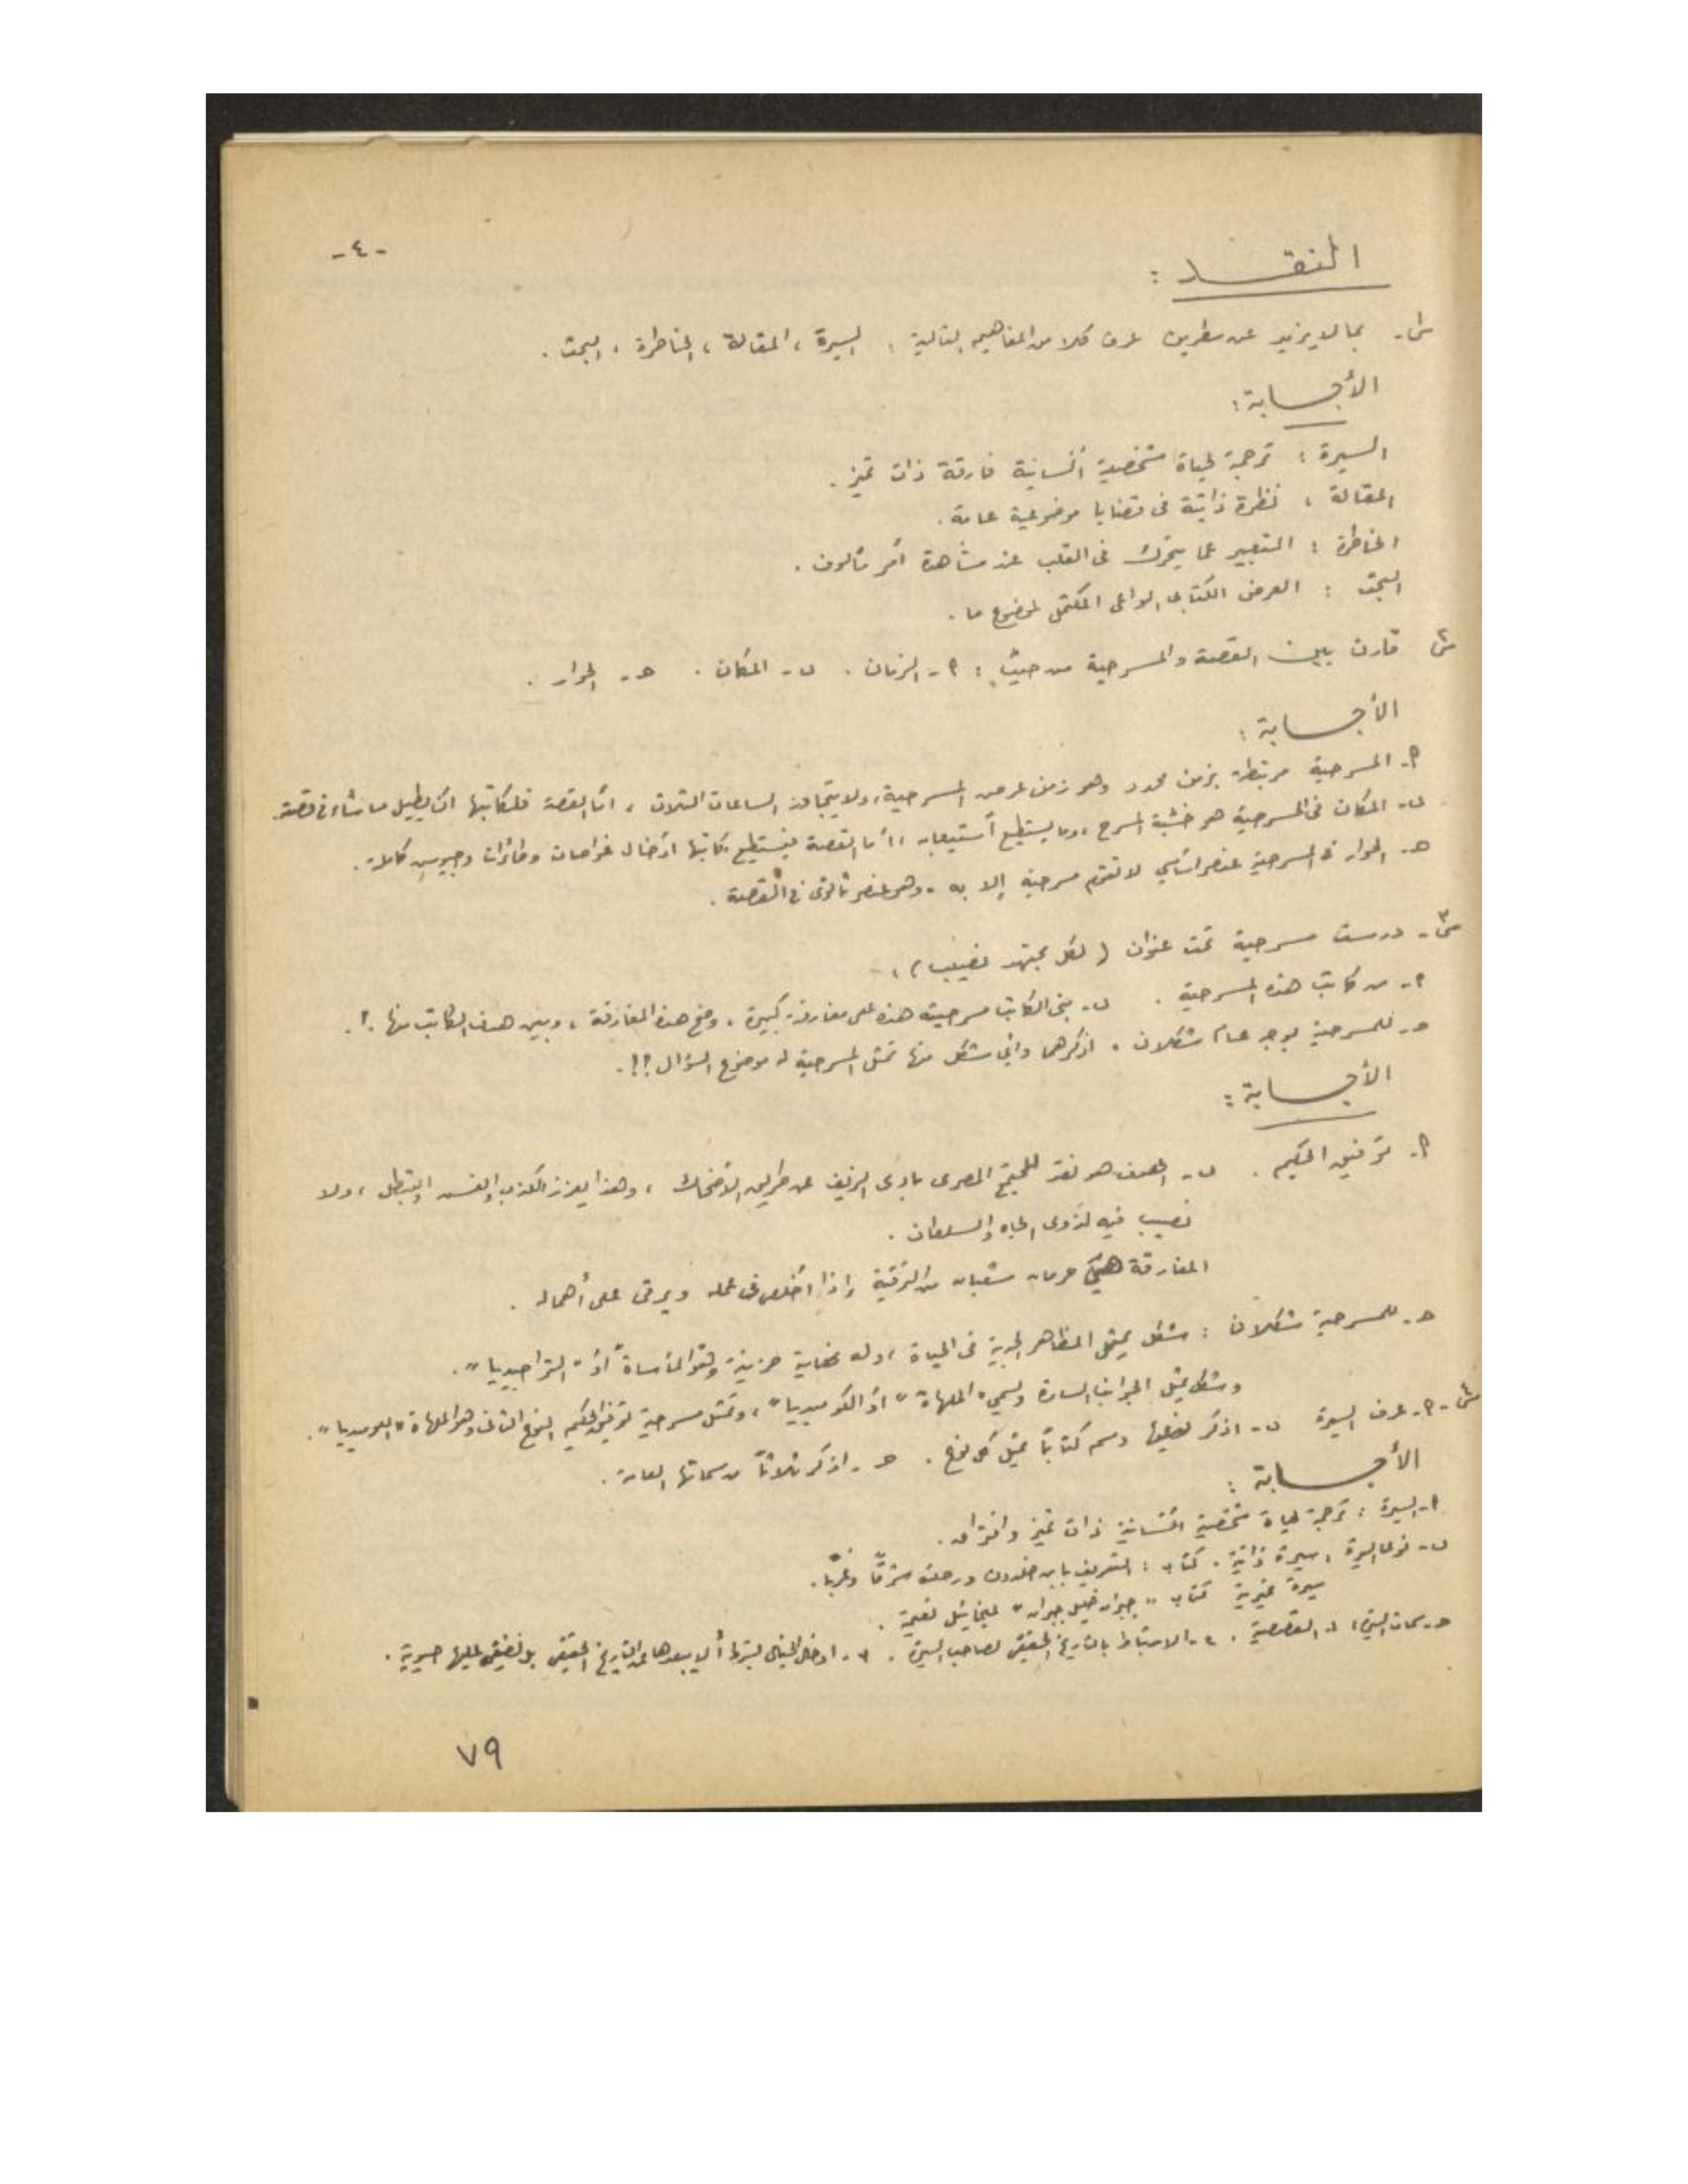 -٤-
النقــد :
س١- بما لا يزيد عن سطرين عرف كلا من المفاهيم التالية : السيرة ، المقالة ، الخاطرة ، البحث .
الأجــابة :
السيرة : ترجمة لحياة شخصية أنسانية فارقة ذات تميز .
المقالة : نظرة ذاتية فى قضايا موضوعية عامة .
الخاطرة : التعبير عما يتحرك فى القلب عند مشاهدة أمر مألوف .
البحث : العرض الكتابى الواعى المكتمل لموضوع ما .
س٢ قارن بين القصة والمسرحية من حيث : ٩- الزمان . ب- المكان . حـ- الحوار .
الأجــابة :
٩- المسرحية مرتبطة بزمن محدد وهو زمن عرض المسرحية ، ولا يتجاوز الساعات الثلاث ، أما القصة فلكاتبها أن يطيل ما شاء فى قصته .
ب- المكان فى المسرحية هو خشبة المسرح ، وما يستطيع أستيعابه ، أما القصة فيستطيع كاتبها ادخال غواصات وطائرات وجيوس كاملة .
حـ- الحوار فى المسرحية عنصر اساسي لا تقوم مسرحية إلا به ، وهو عنصر ثانوى فى القصة .
س٣- درست مسرحية تحت عنوان ( لكل مجتهد نصيب ) :
٩- من كاتب هذه المسرحية . ب- بنى الكاتب مسرحيته هذه على مفارقة كبيرة ، وضح هذه المفارقة ، وبين هدف الكاتب منها .؟.
حـ- للمسرحية بوجه عام شكلان ، اذكرهما وأي شكل منها تمثل المسرحية موضوع السؤال ؟!.
الأجــابة :
٩- توفيق الحكيم . ب- الهدف هو نقد للمجتمع المصرى بادى الزيف عن طريق الأضحاك ، وهذا يعزز الكذب والغش والتبطل ، ولا
نصيب فيه لذوى الجاه والسلطان .
المفارقة هي حرمان شعبان من الترقية إذا أخلص فى عمله ويرقى على أهماله .
حـ- للمسرحية شكلان : شكل يمثل المظاهر الجدية فى الحياة ، وله نهاية حزينة وهو المأساة أو " التراجيديا " .
وشكل يمثل الجوانب السارة ويسمي " الملهاة " أو الكوميديا " ، وتمثل مسرحية توفيق الحكيم النوع الثانى وهو الملهاة
س٤- ٩- عرف السيرة ب- اذكر نوعيها وسم كتابًا يمثل كل نوع . حـ- اذكر ثلاثاً من سماتها العامة .
الأجــابة :
٩- السيرة : ترجمة لحياة شخصية أنسانية ذات تميز وافتراق .
ب- نوعا السيرة : سيرة ذاتية . كتاب : التعريف بابن خلدون ورحلته شرقًا وغربًا .
سيرة غيرية كتاب " جبران خليل جبران " لميخائيل نعيمة .
حـ- سمات السيرة : ١- القصصية . ٢- الارتباط بالتاريخ الحقيقى لصاحب السيرة . ٣- ادخال الخيال بشرط ألا يبعدها عن التاريخ الحقيقى بل تضفى عليها حيوية .
٧٩